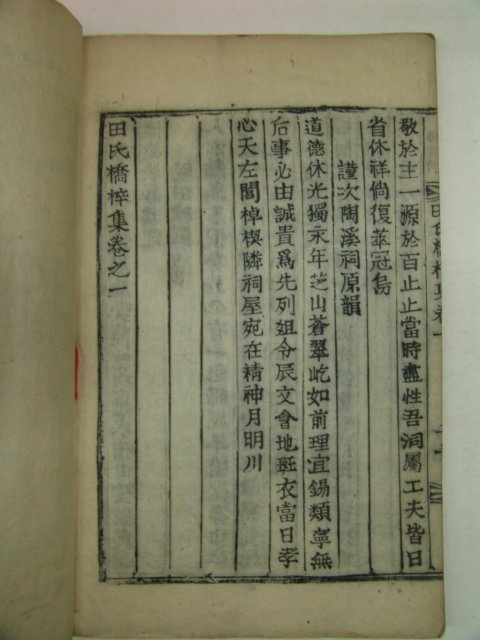 敬於主一源於百止止當時盡性吾洞屬工夫皆日
省休祥倘復華冠
謹次陶溪祠原韻
道德休光獨永年芝山蒼翠屹如前理宜錫類寧無
后事必由誠貴爲先列姐令辰文會地斑衣當日孝
心天左閭棹楔隣祠屋宛在精神月明川
田氏橋梓集卷之一
田氏橋梓集卷一